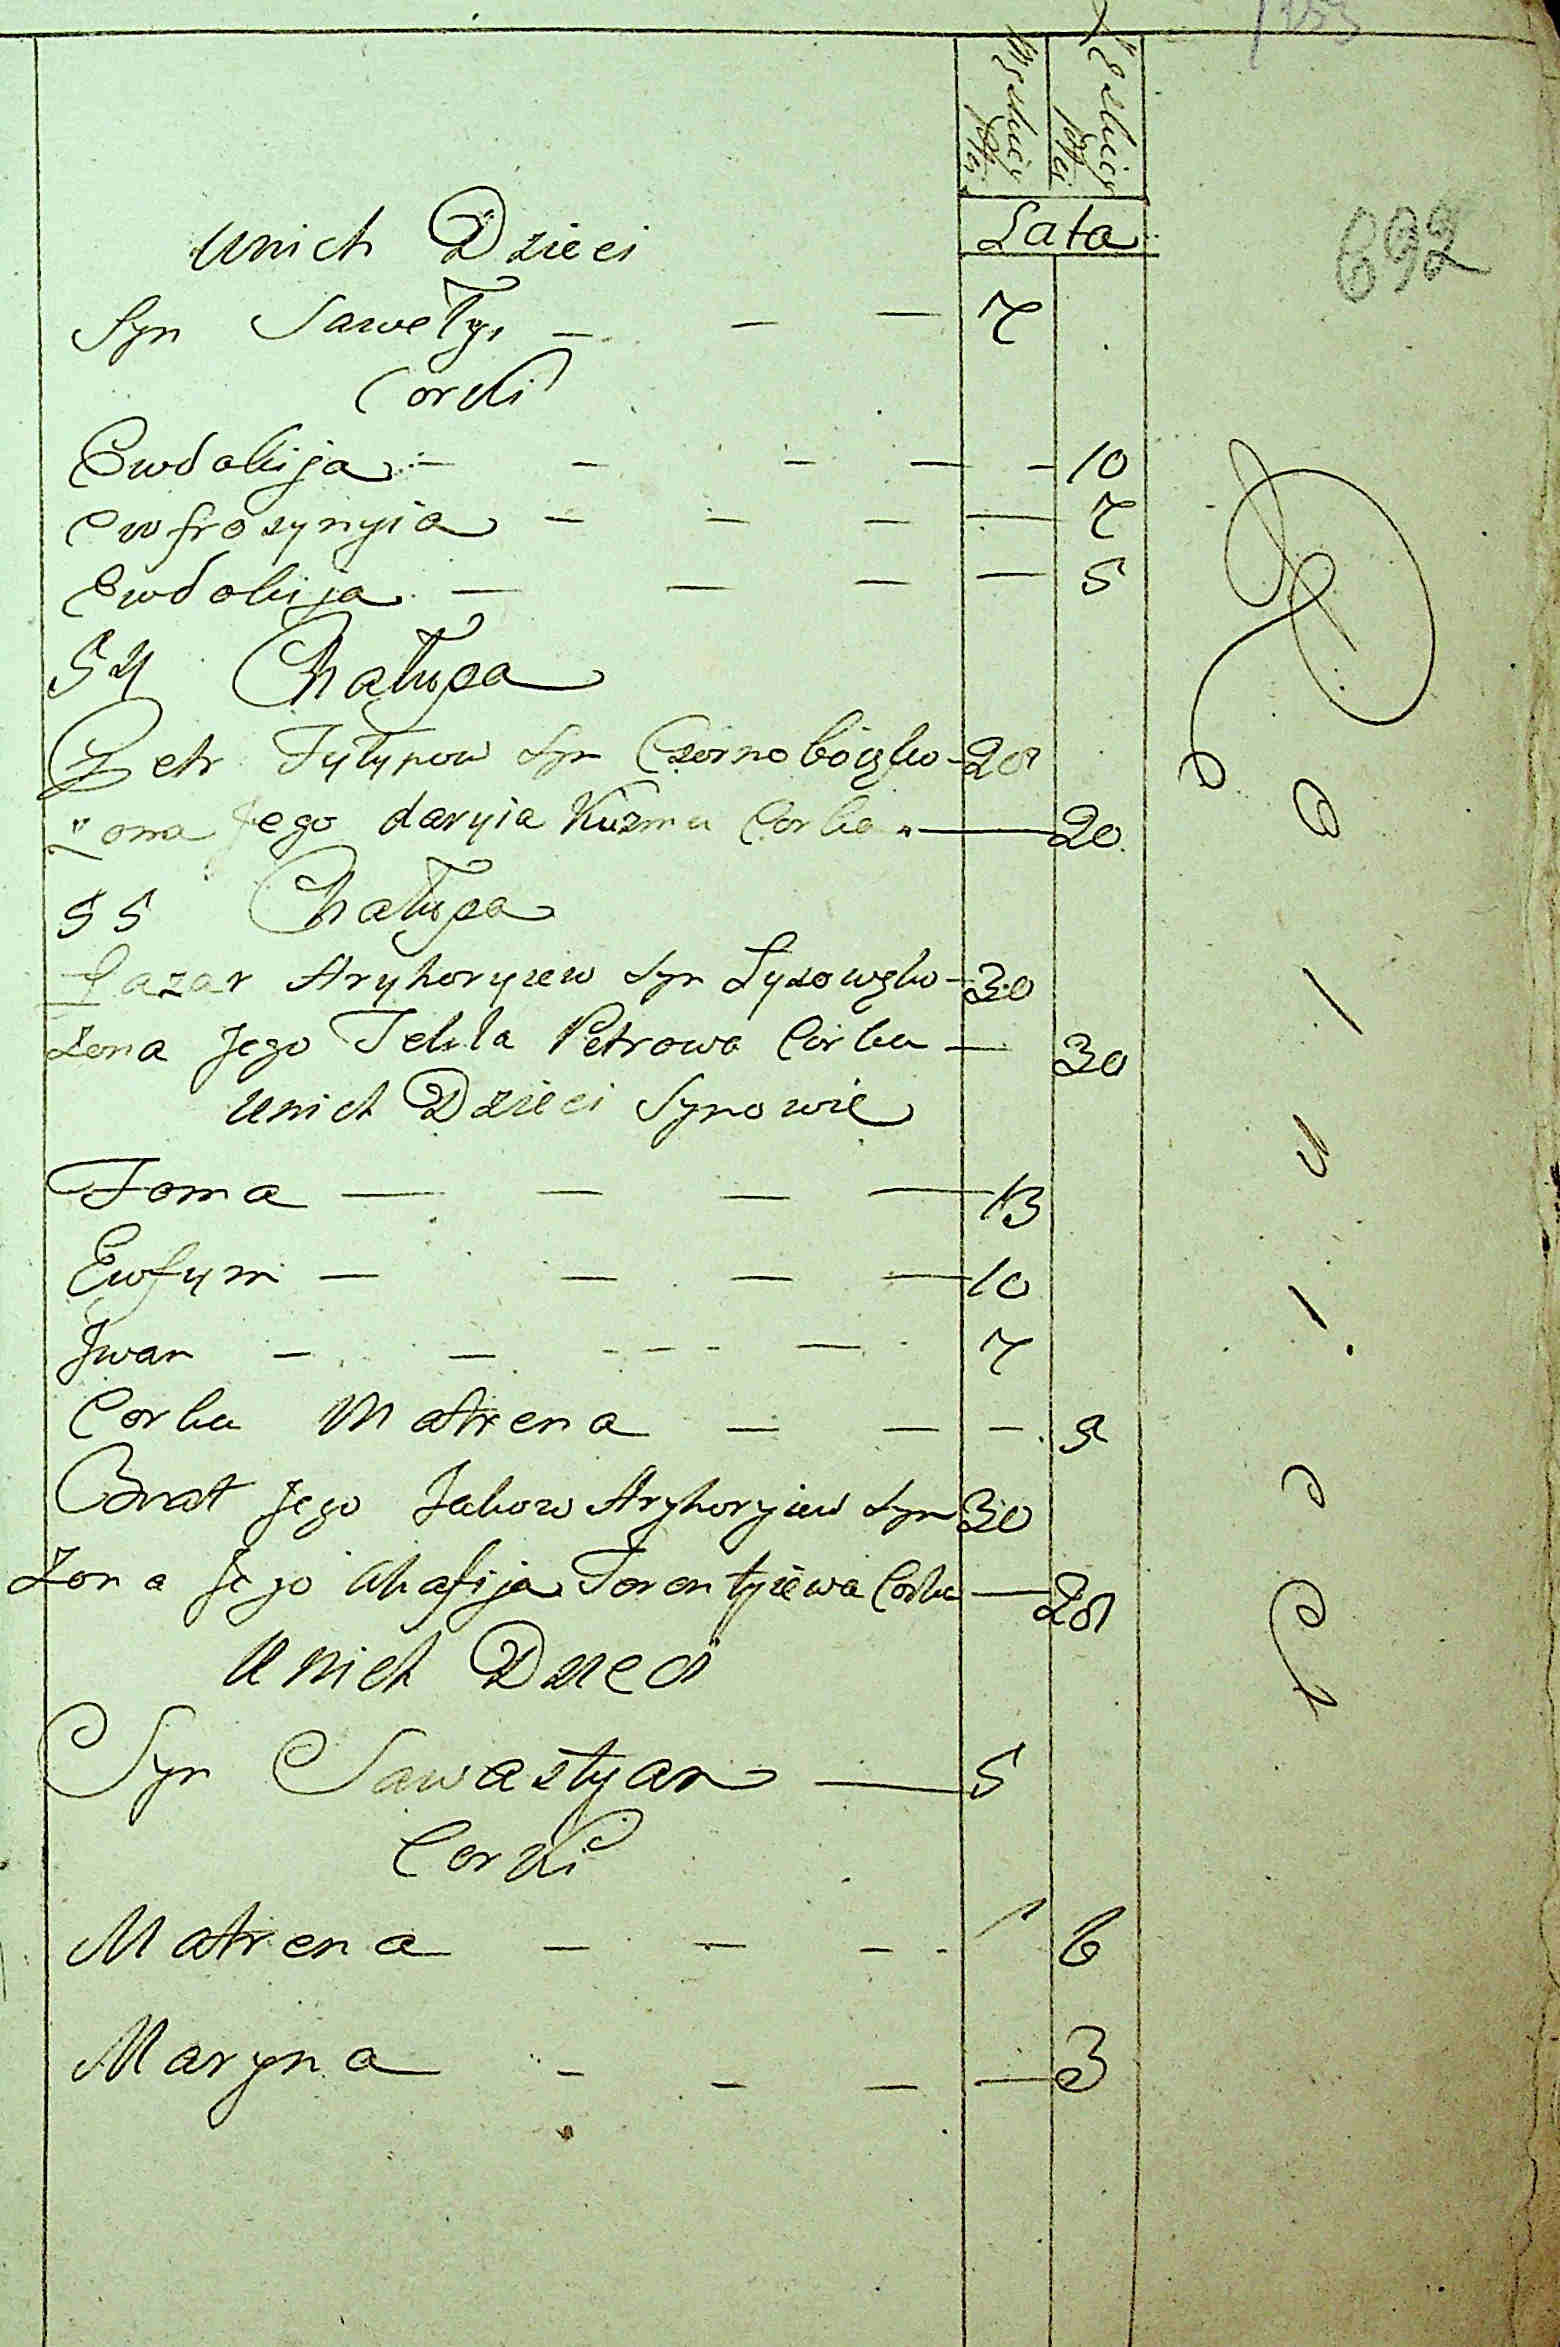 Męskiey płci
Żeńskiey płci
Lata
692
Unich Dzieci
Syn Sawełyi 7
Corki
Ewdokija 10
Ewfrosynyia 7
Ewdokija 5
54 Chałupa
Petr Fylypow Syn 28
Żona Jego daryia Kuzma Corka 20
55 Chałupa
Łazar Hryhoryiew Syn 30
Żona Jego Tekla Petrowa Corka 30
Unich Dzieci Synowie
Foma 13
Ewfym 10
Jwan 7
Corka Matrena
Brat Jego Jakow Hryhoryiew Syn 30
Żona Jego Ahafija Terentyiewa Corka 28
Unich Dzieci
Syn Sawastyan 5
Corki
Matrena 6
Maryna 3